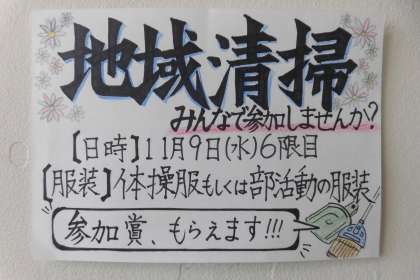 地域清掃
みんなで参加しませんか?
【日時】11月9日(水)6限目
【服装】体操服もしくは部活動の服装
参加賞、もらえます!!!